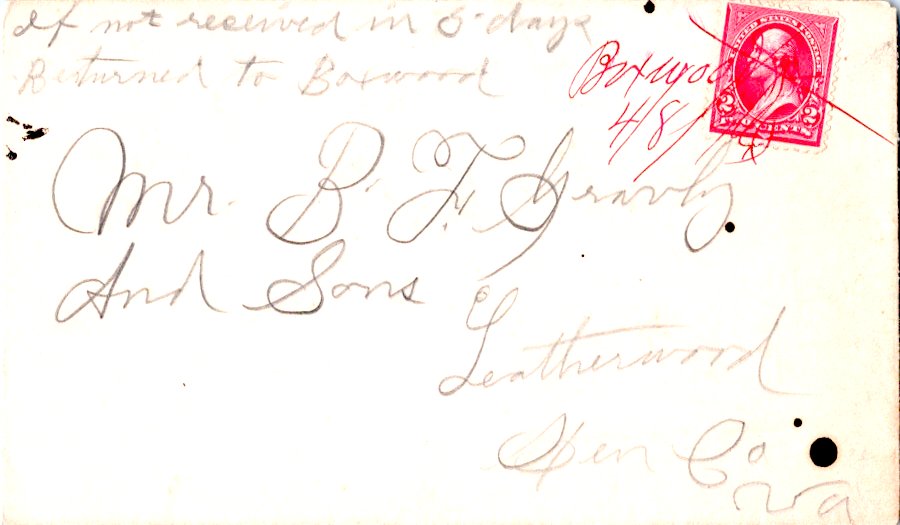 If not received in 5 days
Returned to Boxwood
Boxwood
4/8/
UNITED STATES POSTAGE
2 2
TWO CENTS
Mr. B. F. Gravly
And Sons
Leatherwood
Hen Co
Va